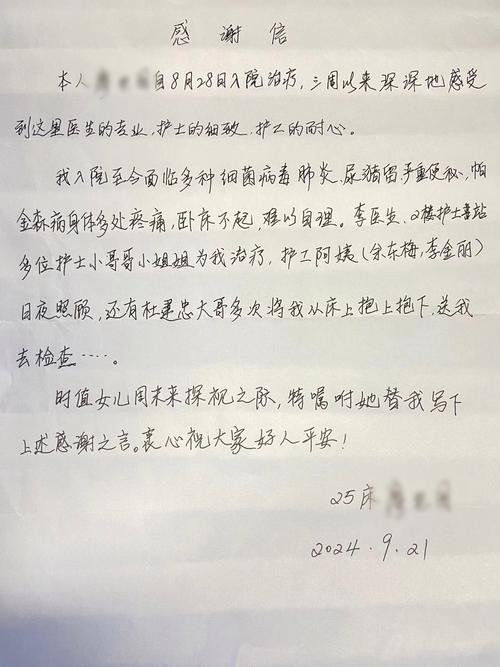 感谢信
本人 自8月28日入院治疗,三周以来深深地感受
到这里医生的专业,护士的细致,护工的耐心。
我入院至今面临多种细菌病毒肺炎、尿潴留严重便秘、帕
金森病身体多处疼痛,卧床不起,难以自理。李医生、2楼护士站
多位护士小哥哥小姐姐为我治疗,护工阿姨(余东梅,李金丽)
日夜照顾,还有杜建忠大哥多次将我从床上抱上抱下,送我
去检查……。
时值女儿周末来探视之际,特嘱咐她替我写下
上述感谢之言。衷心祝大家好人平安!
25床
2024.9.21